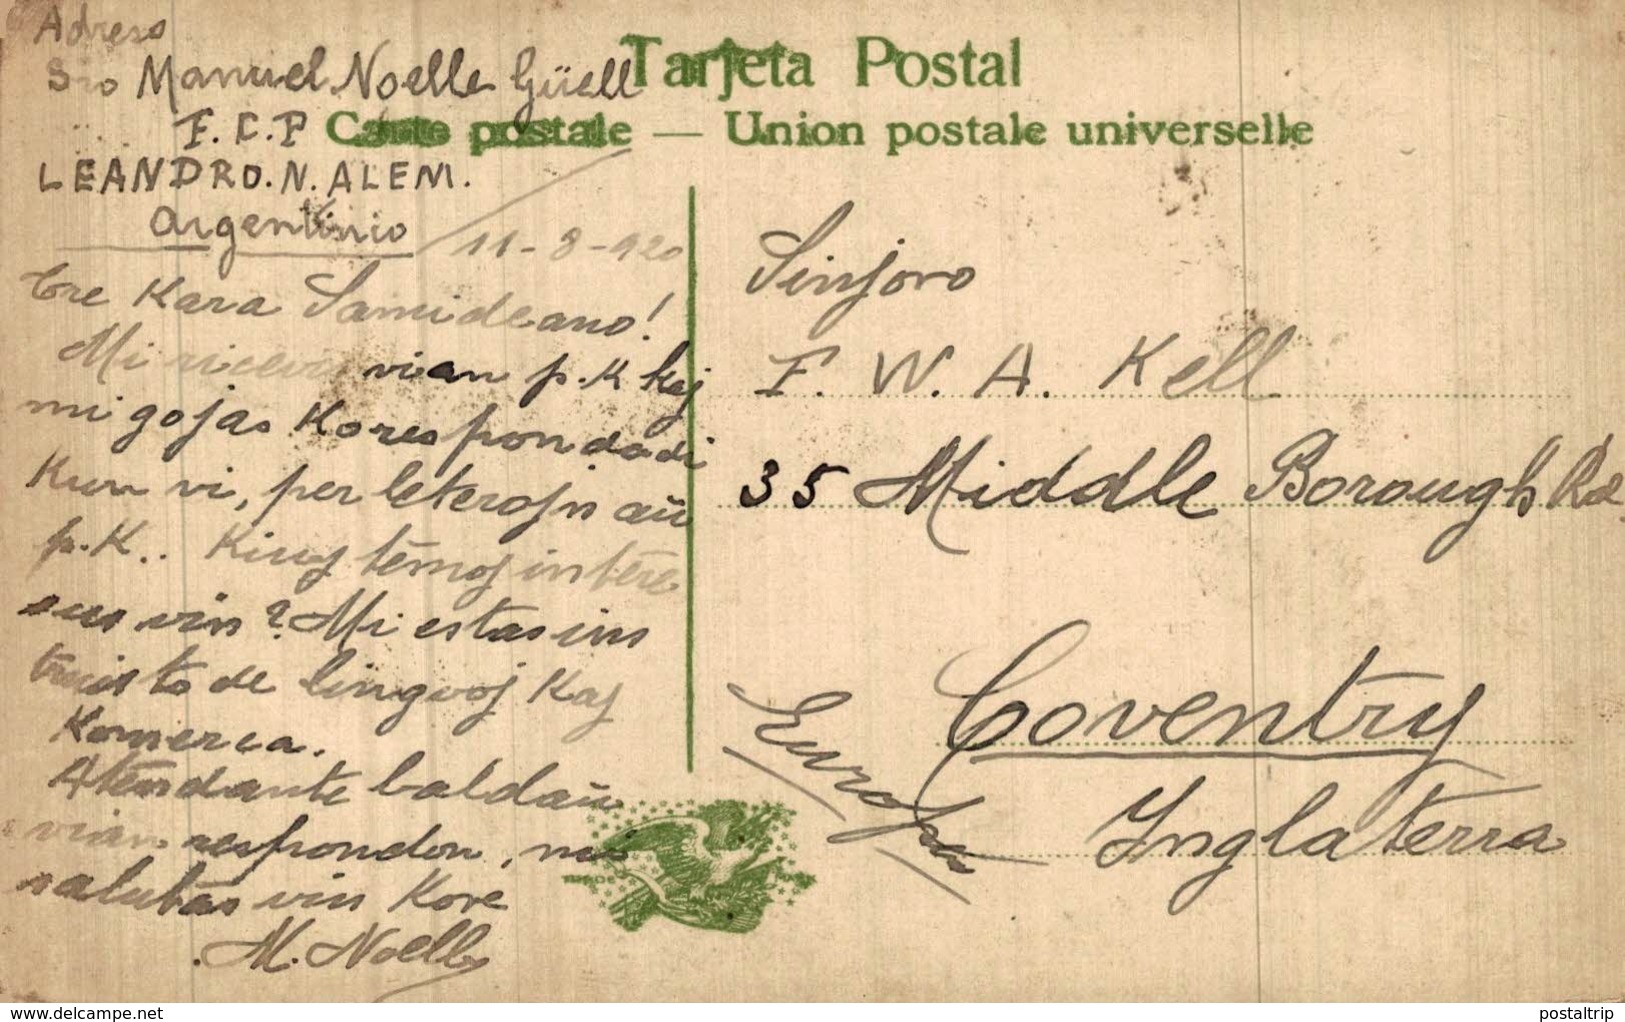 Adreso
Sro Manuel Noelle Güell
F. C. P
LEANDRO. N. ALEM.
Argentinio
11-8-920
Tarjeta Postal
Carte postale — Union postale universelle
Tre Kara Samideano!
Mi ricevis vian p.K kaj
mi gojas Korespondadi
Kun vi, per leterojn aŭ
p.K.. Kiuj temoj intere
sas vin? Mi estas ins
truisto de lingvoj Kaj
Komerca.
Atendante baldaŭ
vian respondon, mi
salutas vin Kore
M. Noelle
Sinjoro
F. W. A. Kell
35 Middle Borough Rd.
Coventry
Europa
Inglaterra
www.delcampe.net
postaltrip